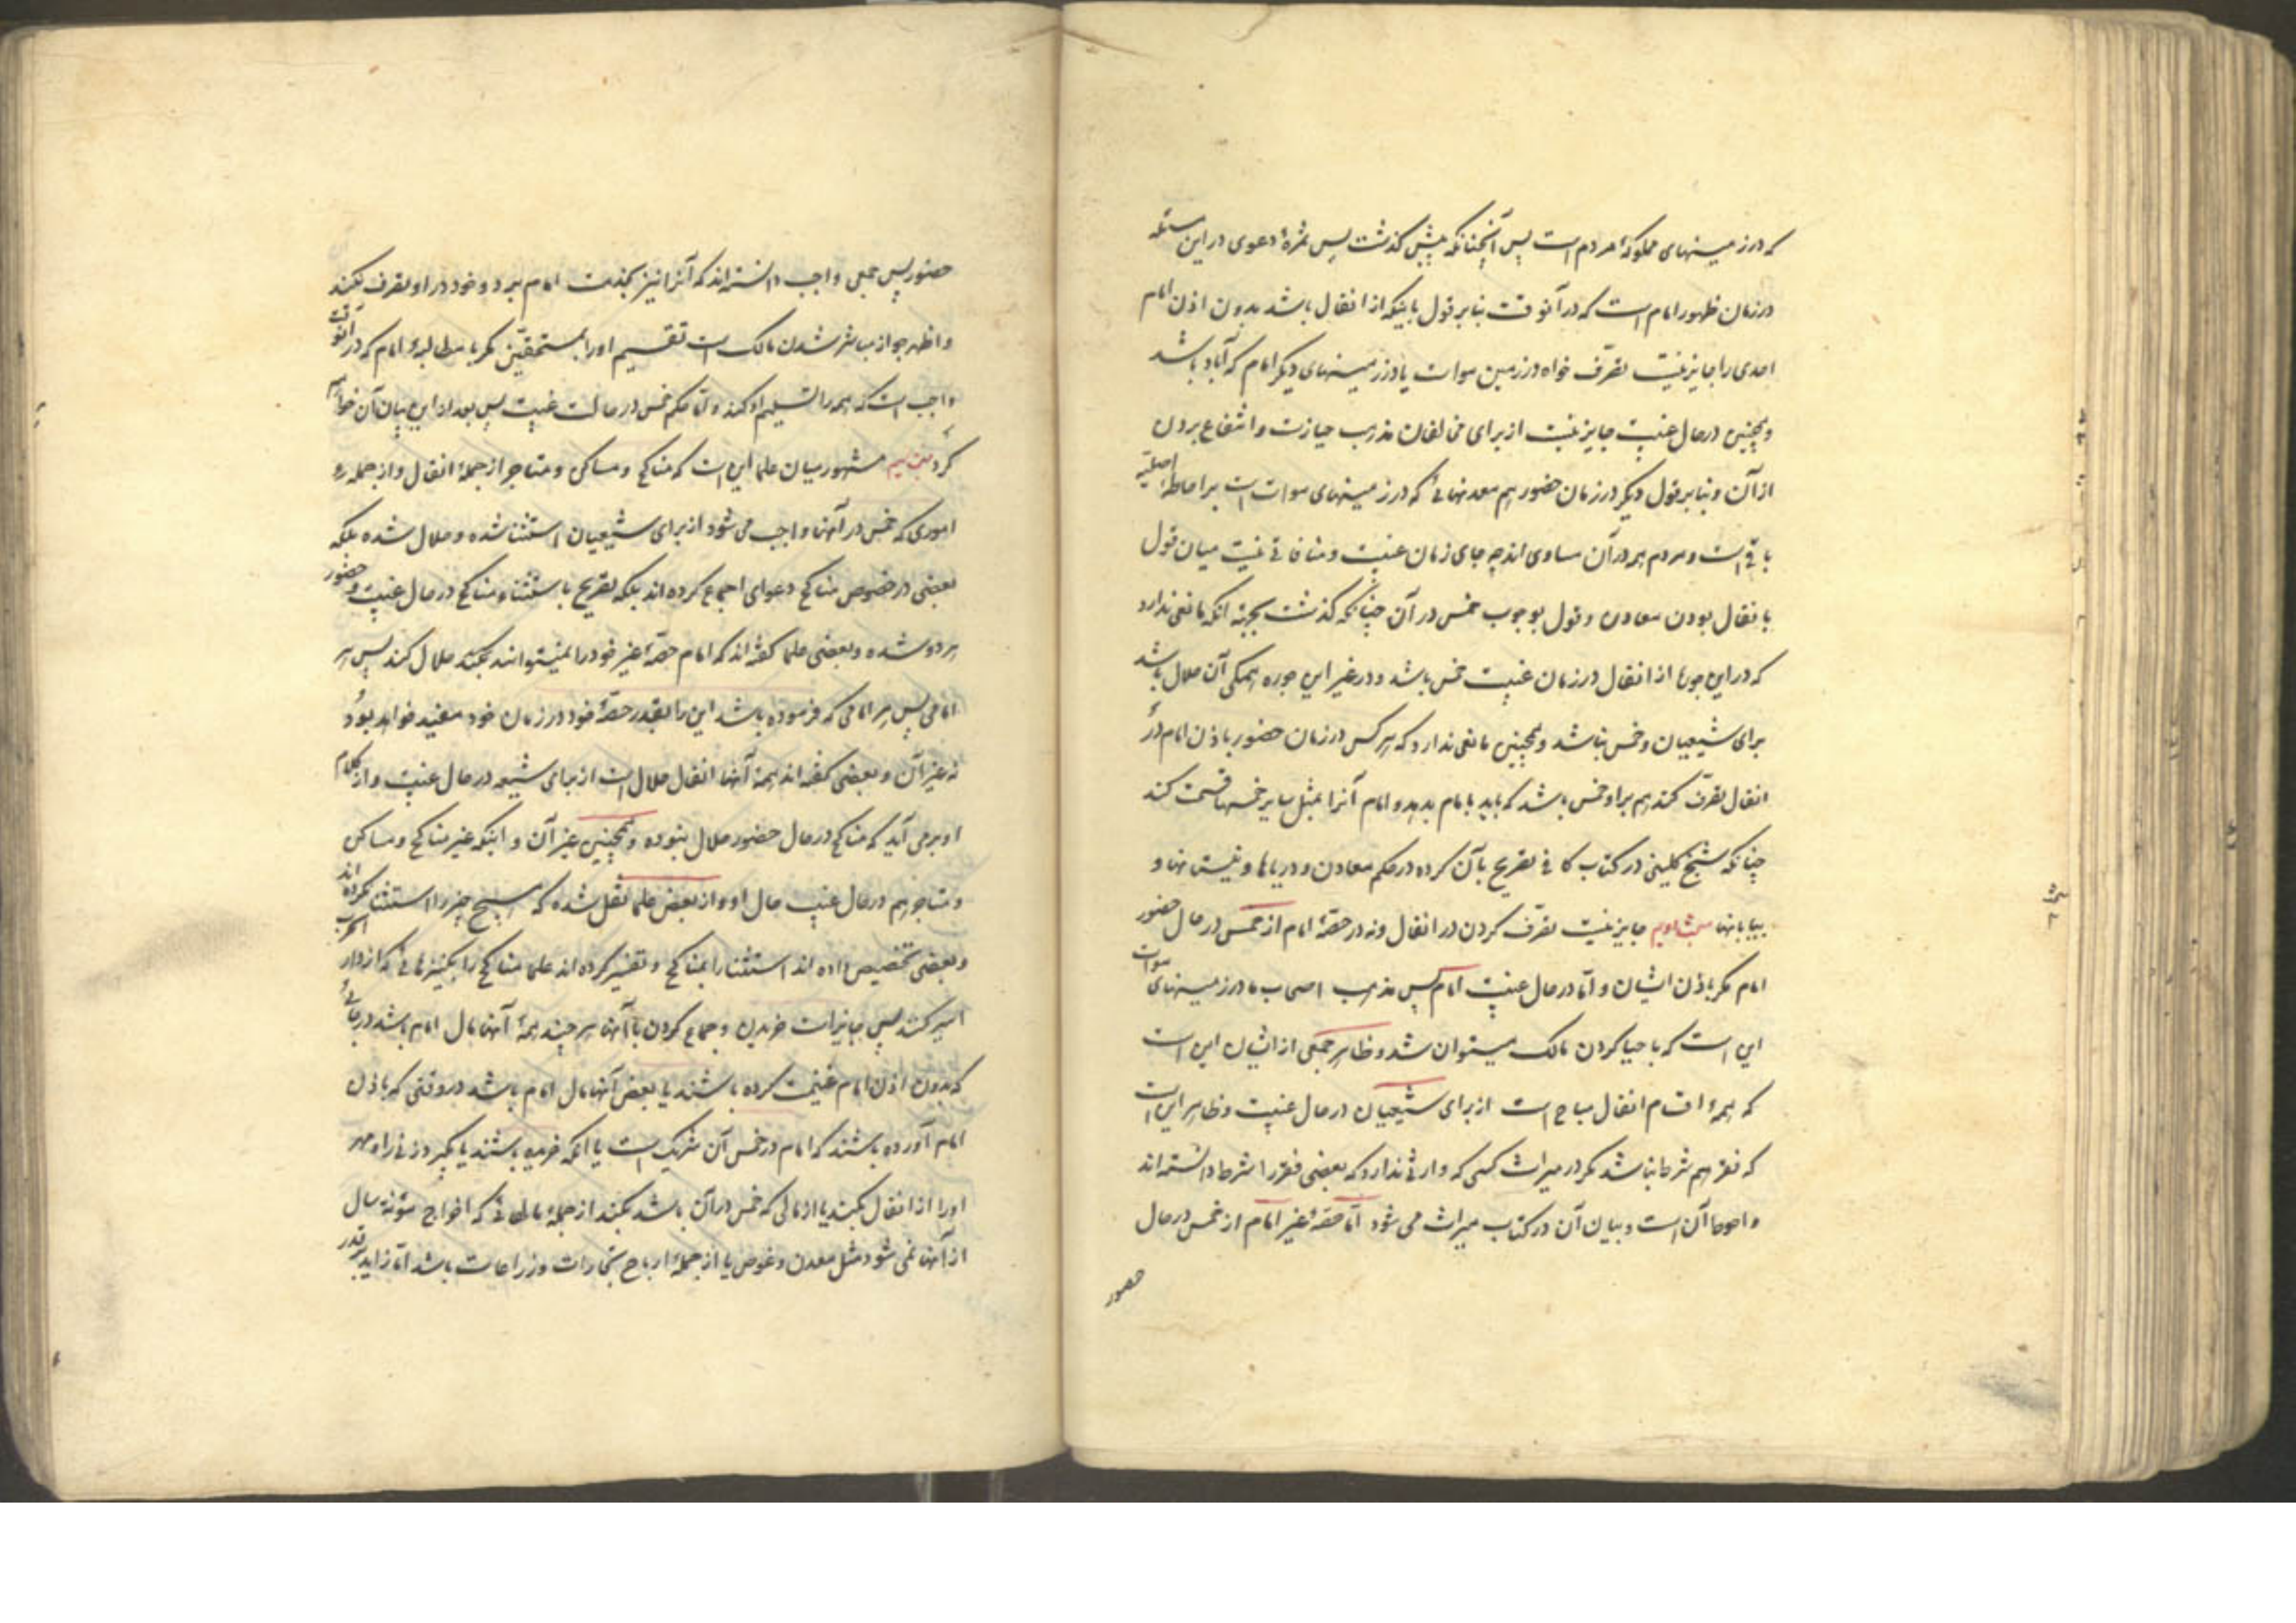 که در زمینهای مملوکهٔ مردم است پس آنچنانکه پیش گذشت پس ثمرهٔ دعوی در این مسئله
در زمان ظهور امام است که در آنوقت بنا بر قول باینکه از انفال باشد بدون اذن امام
احدی را جایز نیست تصرّف خواه در زمین موات یا در زمینهای دیگر امام که آباد باشد
و همچنین در حال غیبت جایز نیست از برای مخالفان مذهب حیازت و انتفاع بردن
از آن و بنا بر قول دیگر در زمان حضور هم معدنهائی که در زمینهای موات است بر اباحهٔ اصلیه
باقی است و مردم همه در آن مساوی اند چه جای زمان غیبت و منافاتی نیست میان قول
بانفال بودن معادن و قول بوجوب خمس در آن چنانکه گذشت بجهة آنکه مانعی ندارد
که در این جورها از انفال در زمان غیبت خمس باشد و در غیر این جوره همگی آن حلال باشد
برای شیعیان و خمس نباشد و همچنین مانعی ندارد که هر کس در زمان حضور باذن امام در
انفال تصرّف کند هم بر او خمس باشد که باید بامام بدهد و امام آنرا بمثل سایر خمسها قسمت کند
چنانکه شیخ کلینی در کتاب کافی تصریح بآن کرده در حکم معادن و دریاها و نیستانها و
بیابانها جایز نیست تصرّف کردن در انفال و نه در حصّهٔ امام از خمس در حال حضور
امام مگر باذن ایشان و امّا در حال غیبت امام پس مذهب اصحاب ما در زمینهای موات
این است که باحیا کردن مالک میتوان شد و ظاهر جمعی از ایشان این است
که همهٔ اقسام انفال مباح است از برای شیعیان در حال غیبت و ظاهر این است
که فقر هم شرط نباشد مگر در میراث کسی که وارثی ندارد که بعضی فقر را شرط دانسته اند
و احوط آن است و بیان آن در کتاب میراث می شود امّا حصّهٔ غیر امام از خمس در حال
حضور
حضور پس جمعی واجب دانسته اند که آنرا نیز بخدمت امام برد و خود در او تصرف نکند
و اظهر جواز مباشر شدن مالک است تقسیم او را بمستحقین مگر با مطالبهٔ امام که در آنوقت
واجب است که همه را تسلیم او کند و امّا حکم خمس در حالت غیبت پس بعد از این بیان آن خواهم
کرد مشهور میان علما این است که مناکح و مساکن و متاجر از جملهٔ انفال و از جمله
اموری که خمس در آنها واجب می شود از برای شیعیان استثنا شده و حلال شده بلکه
بعضی در خصوص مناکح دعوای اجماع کرده اند بلکه تصریح باستثناء مناکح در حال غیبت و حضور
هر دو شده و بعضی علما گفته اند که امام حصّهٔ غیر خود را نمیتوانند بکند حلال کند پس هر
امامی پس هر امامی که فرموده باشد این را بقدر حصّهٔ خود در زمان خود مفید خواهد بود
نه غیر آن و بعضی گفته اند همهٔ آنها انفال حلال است از برای شیعه در حال غیبت و از کلام
او بر می آید که مناکح در حال حضور حلال نبوده و همچنین غیر آن و اینکه غیر مناکح و مساکن
و متاجر هم در حال غیبت حلال او و از بعض علما نقل شده که هیچ چیز را استثنا نکرده اند
و بعضی تخصیص داده اند استثنا را بمناکح و تفسیر کرده اند علما مناکح را بکنیزهائی که از دار الحرب
اسیر کنند پس جایز است خریدن و جماع کردن با آنها هر چند همهٔ آنها مال امام باشد در جائی
که بدون اذن امام غنیمت کرده باشند یا بعض آنها مال امام باشد در وقتی که باذن
امام آورده باشند که امام در خمس آن شریک است یا آنکه خریده باشند یا بگیرد زنی را و مهر
او را از انفال بکند یا از مالی که خمس در آن باشد بکند از جملهٔ مالهائی که اخراج مؤنهٔ سال
از آنها نمی شود مثل معدن و غوص یا از جملهٔ ارباح تجارات و زراعات باشد امّا زاید بر قدر